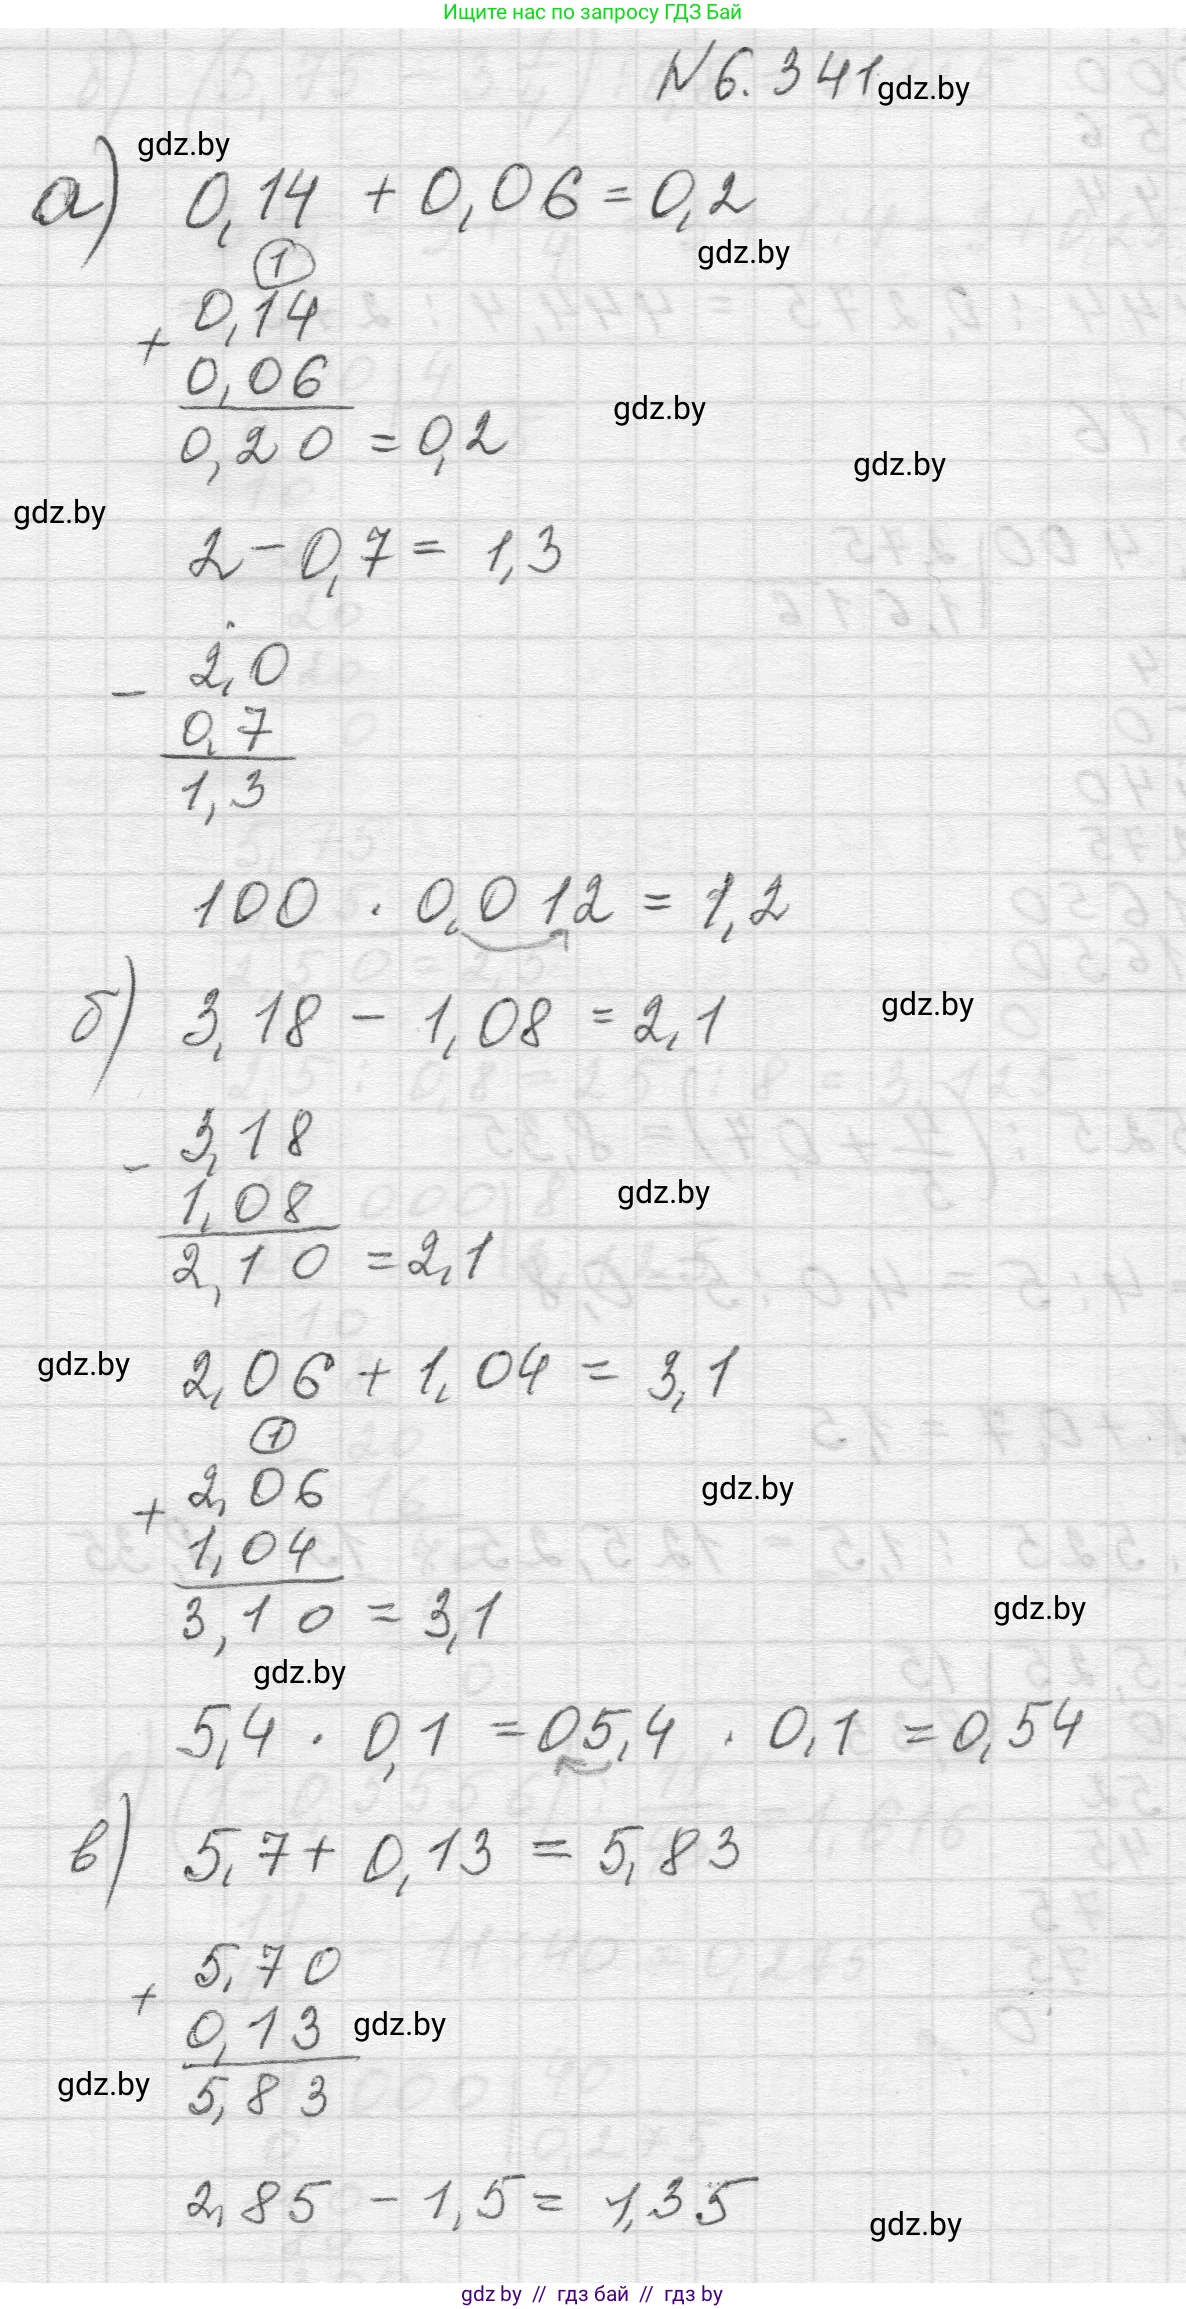 Ищите нас по запросу ГДЗ Бай
№6.341 gdz.by
gdz.by
а) 0,14 + 0,06 = 0,2
gdz.by
1
0,14
+
0,06
gdz.by
0,20 = 0,2
gdz.by
gdz.by
2 - 0,7 = 1,3
2,0
-
0,7
1,3
100 · 0,012 = 1,2
б) 3,18 - 1,08 = 2,1
gdz.by
3,18
-
1,08
gdz.by
2,10 = 2,1
gdz.by
2,06 + 1,04 = 3,1
1
2,06
gdz.by
+
1,04
3,10 = 3,1
gdz.by
gdz.by
5,4 · 0,1 = 05,4 · 0,1 = 0,54
в) 5,7 + 0,13 = 5,83
5,70
+
0,13
gdz.by
gdz.by
5,83
2,85 - 1,5 = 1,35
gdz.by
gdz by // гдз бай // гдз by